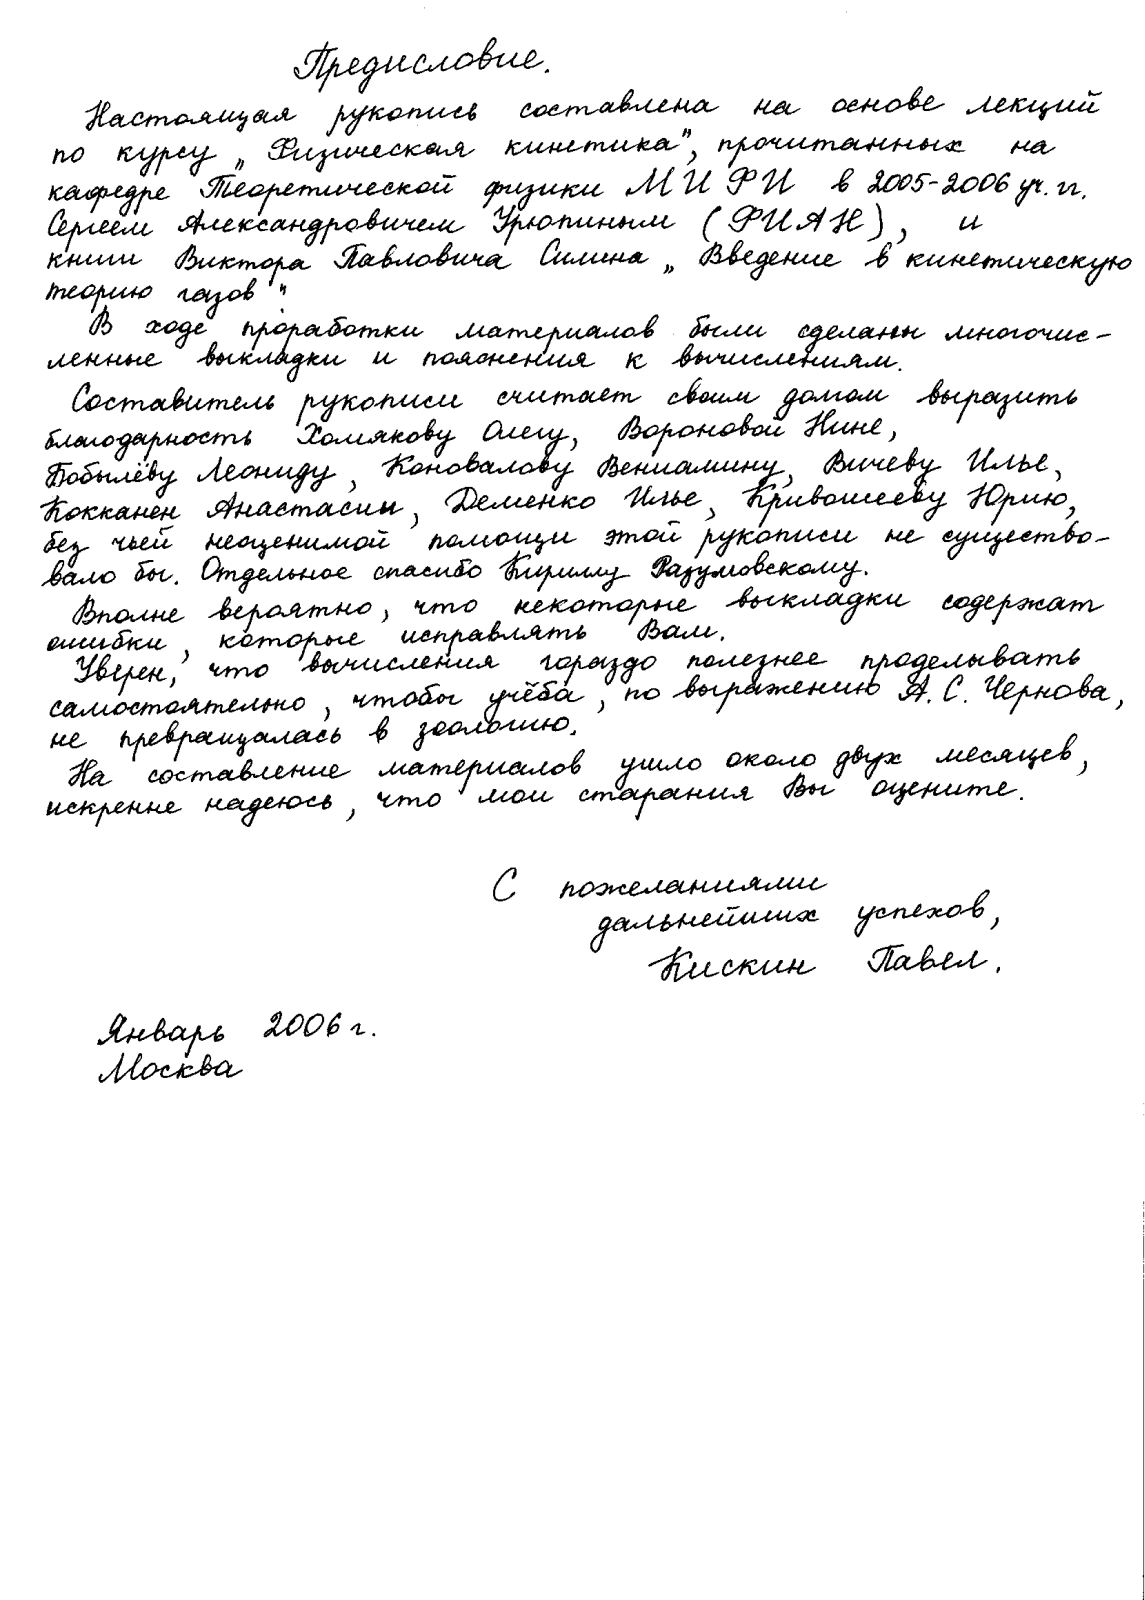 Предисловие.
Настоящая рукопись составлена на основе лекций
по курсу „Физическая кинетика", прочитанных на
кафедре Теоретической физики МИФИ в 2005-2006 уч. гг.
Сергеем Александровичем Урюпиным (ФИАН), и
книги Виктора Павловича Силина „Введение в кинетическую
теорию газов".
В ходе проработки материалов были сделаны многочис-
ленные выкладки и пояснения к вычислениям.
Составитель рукописи считает своим долгом выразить
благодарность Хомякову Олегу, Вороновой Нине,
Бобылёву Леониду, Коновалову Вениамину, Вичеву Илье,
Кокканен Анастасии, Деменко Илье, Кривошееву Юрию,
без чьей неоценимой помощи этой рукописи не существо-
вало бы. Отдельное спасибо Кириллу Разумовскому.
Вполне вероятно, что некоторые выкладки содержат
ошибки, которые исправлять Вам.
Уверен, что вычисления гораздо полезнее проделывать
самостоятельно, чтобы учёба, по выражению А. С. Чернова,
не превращалась в зоологию.
На составление материалов ушло около двух месяцев,
искренне надеюсь, что мои старания Вы оцените.
С пожеланиями
дальнейших успехов,
Кискин Павел.
Январь 2006 г.
Москва